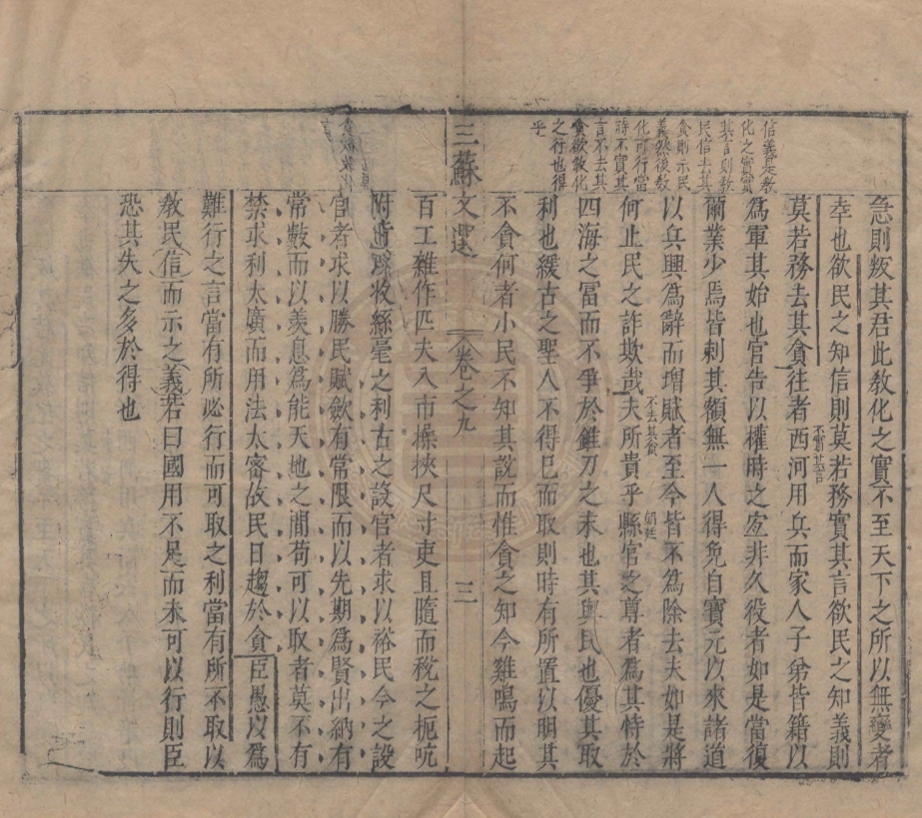 信義是教
化之實實
其言則教
民信去其
貪則示民
義然後教
化可行當
時不實其
言不去其
貪欲教化
之行也得
乎
急則叛其君此敎化之實不至天下之所以無變者
幸也欲民之知信則莫若務實其言欲民之知義則
莫若務去其貪往者西河用兵而家人子弟皆籍以
不實其言
為軍其始也官告以權時之宜非久役者如是當復
爾業少焉皆刺其額無一人得免自寶元以來諸道
以兵興為辭而增賦者至今皆不為除去夫如是將
不去其貪
朝廷
何止民之詐欺哉夫所貴乎縣官之尊者為其恃於
四海之富而不爭於錐刀之末也其與民也優其取
利也緩古之聖人不得已而取則時有所置以明其
不貪何者小民不知其說而惟貪之知今雞鳴而起
三蘇文選 卷之九 三
百工雜作匹夫入市操挾尺寸吏且隨而稅之扼吭
附背 收絲毫之利古之設官者求以裕民今之設
官者求以勝民賦斂有常限而以先期為賢出納有
常數而以羨息為能天地之間苟可以取者莫不有
禁求利太廣而用法太密故民日趨於貪臣愚以為
難行之言當有所必行而可取之利當有所不取以
敎民信而示之義若曰國用不足而未可以行則臣
恐其失之多於得也